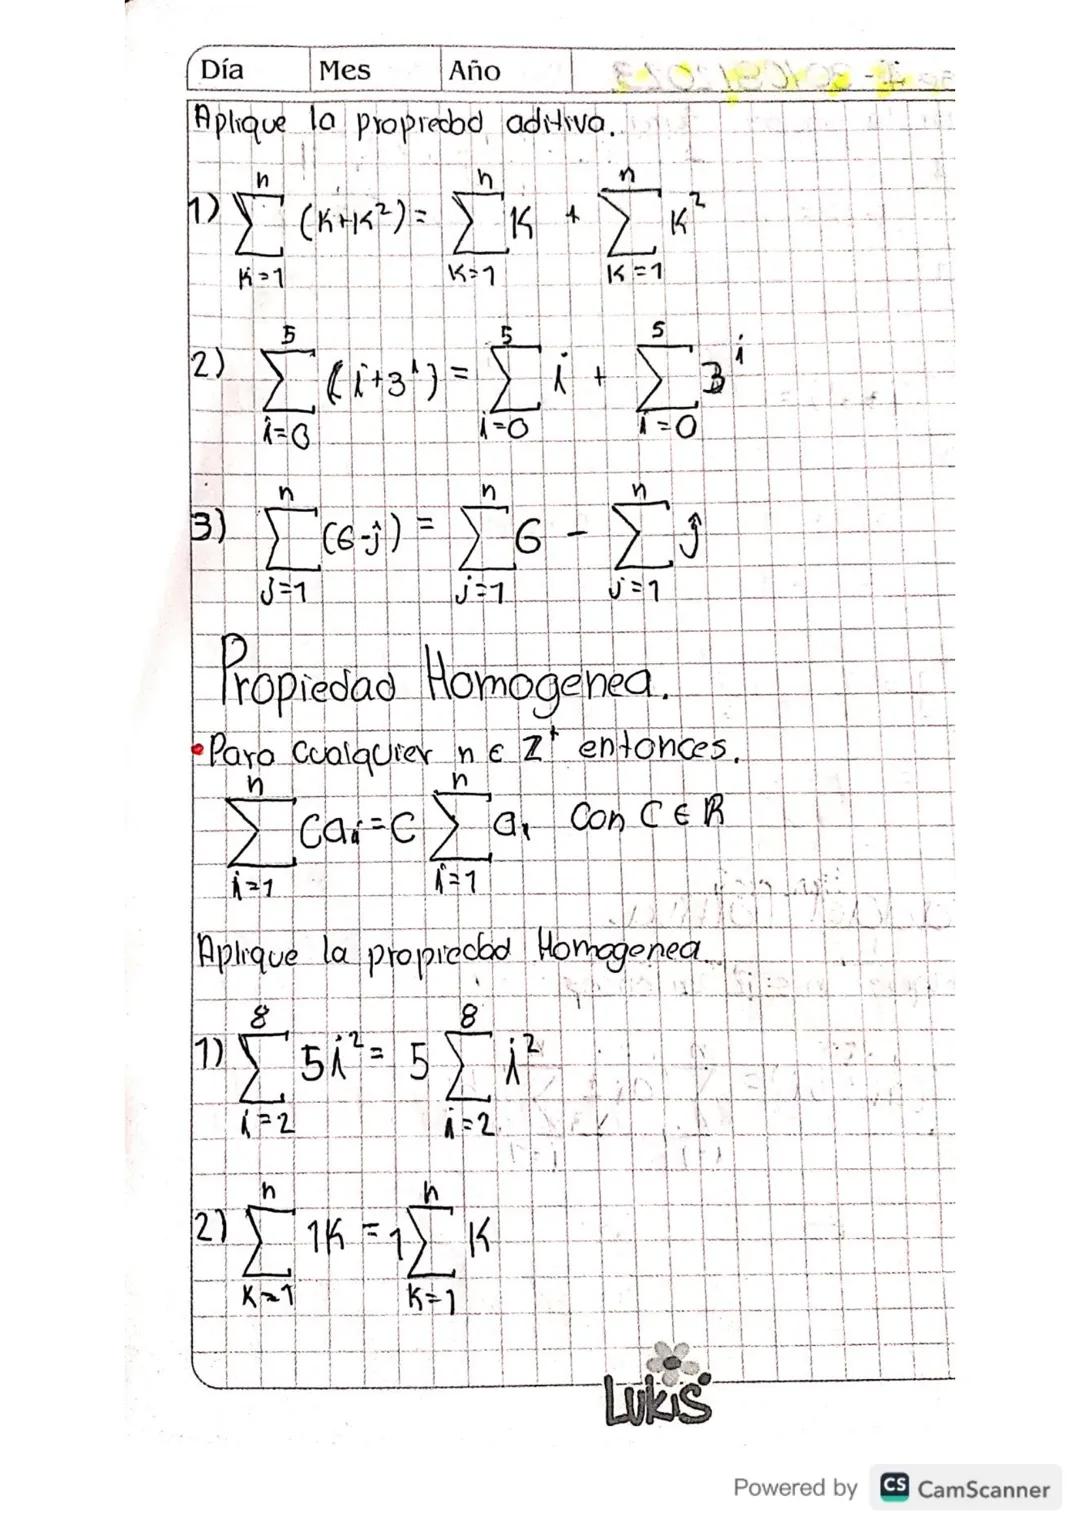 Día Mes Año
Aplique la propiedad aditiva.
1) n∑K=1 (K+K²) = n∑K=1 K + n∑K=1 K²
2) 5∑i=0 (i+3^i) = 5∑i=0 i + 5∑i=0 3^i
3) n∑j=1 (6-j) = n∑j=1 6 - n∑j=1 j
Propiedad Homogenea.
• Para cualquier n ∈ Z⁺ entonces.
n∑i=1 Caᵢ = C n∑i=1 aᵢ con C ∈ R
Aplique la propiedad Homogenea.
1) 8∑i=2 5i² = 5 8∑i=2 i²
2) n∑K=1 1K = 1 n∑K=1 K
Lukis
Powered by CS CamScanner